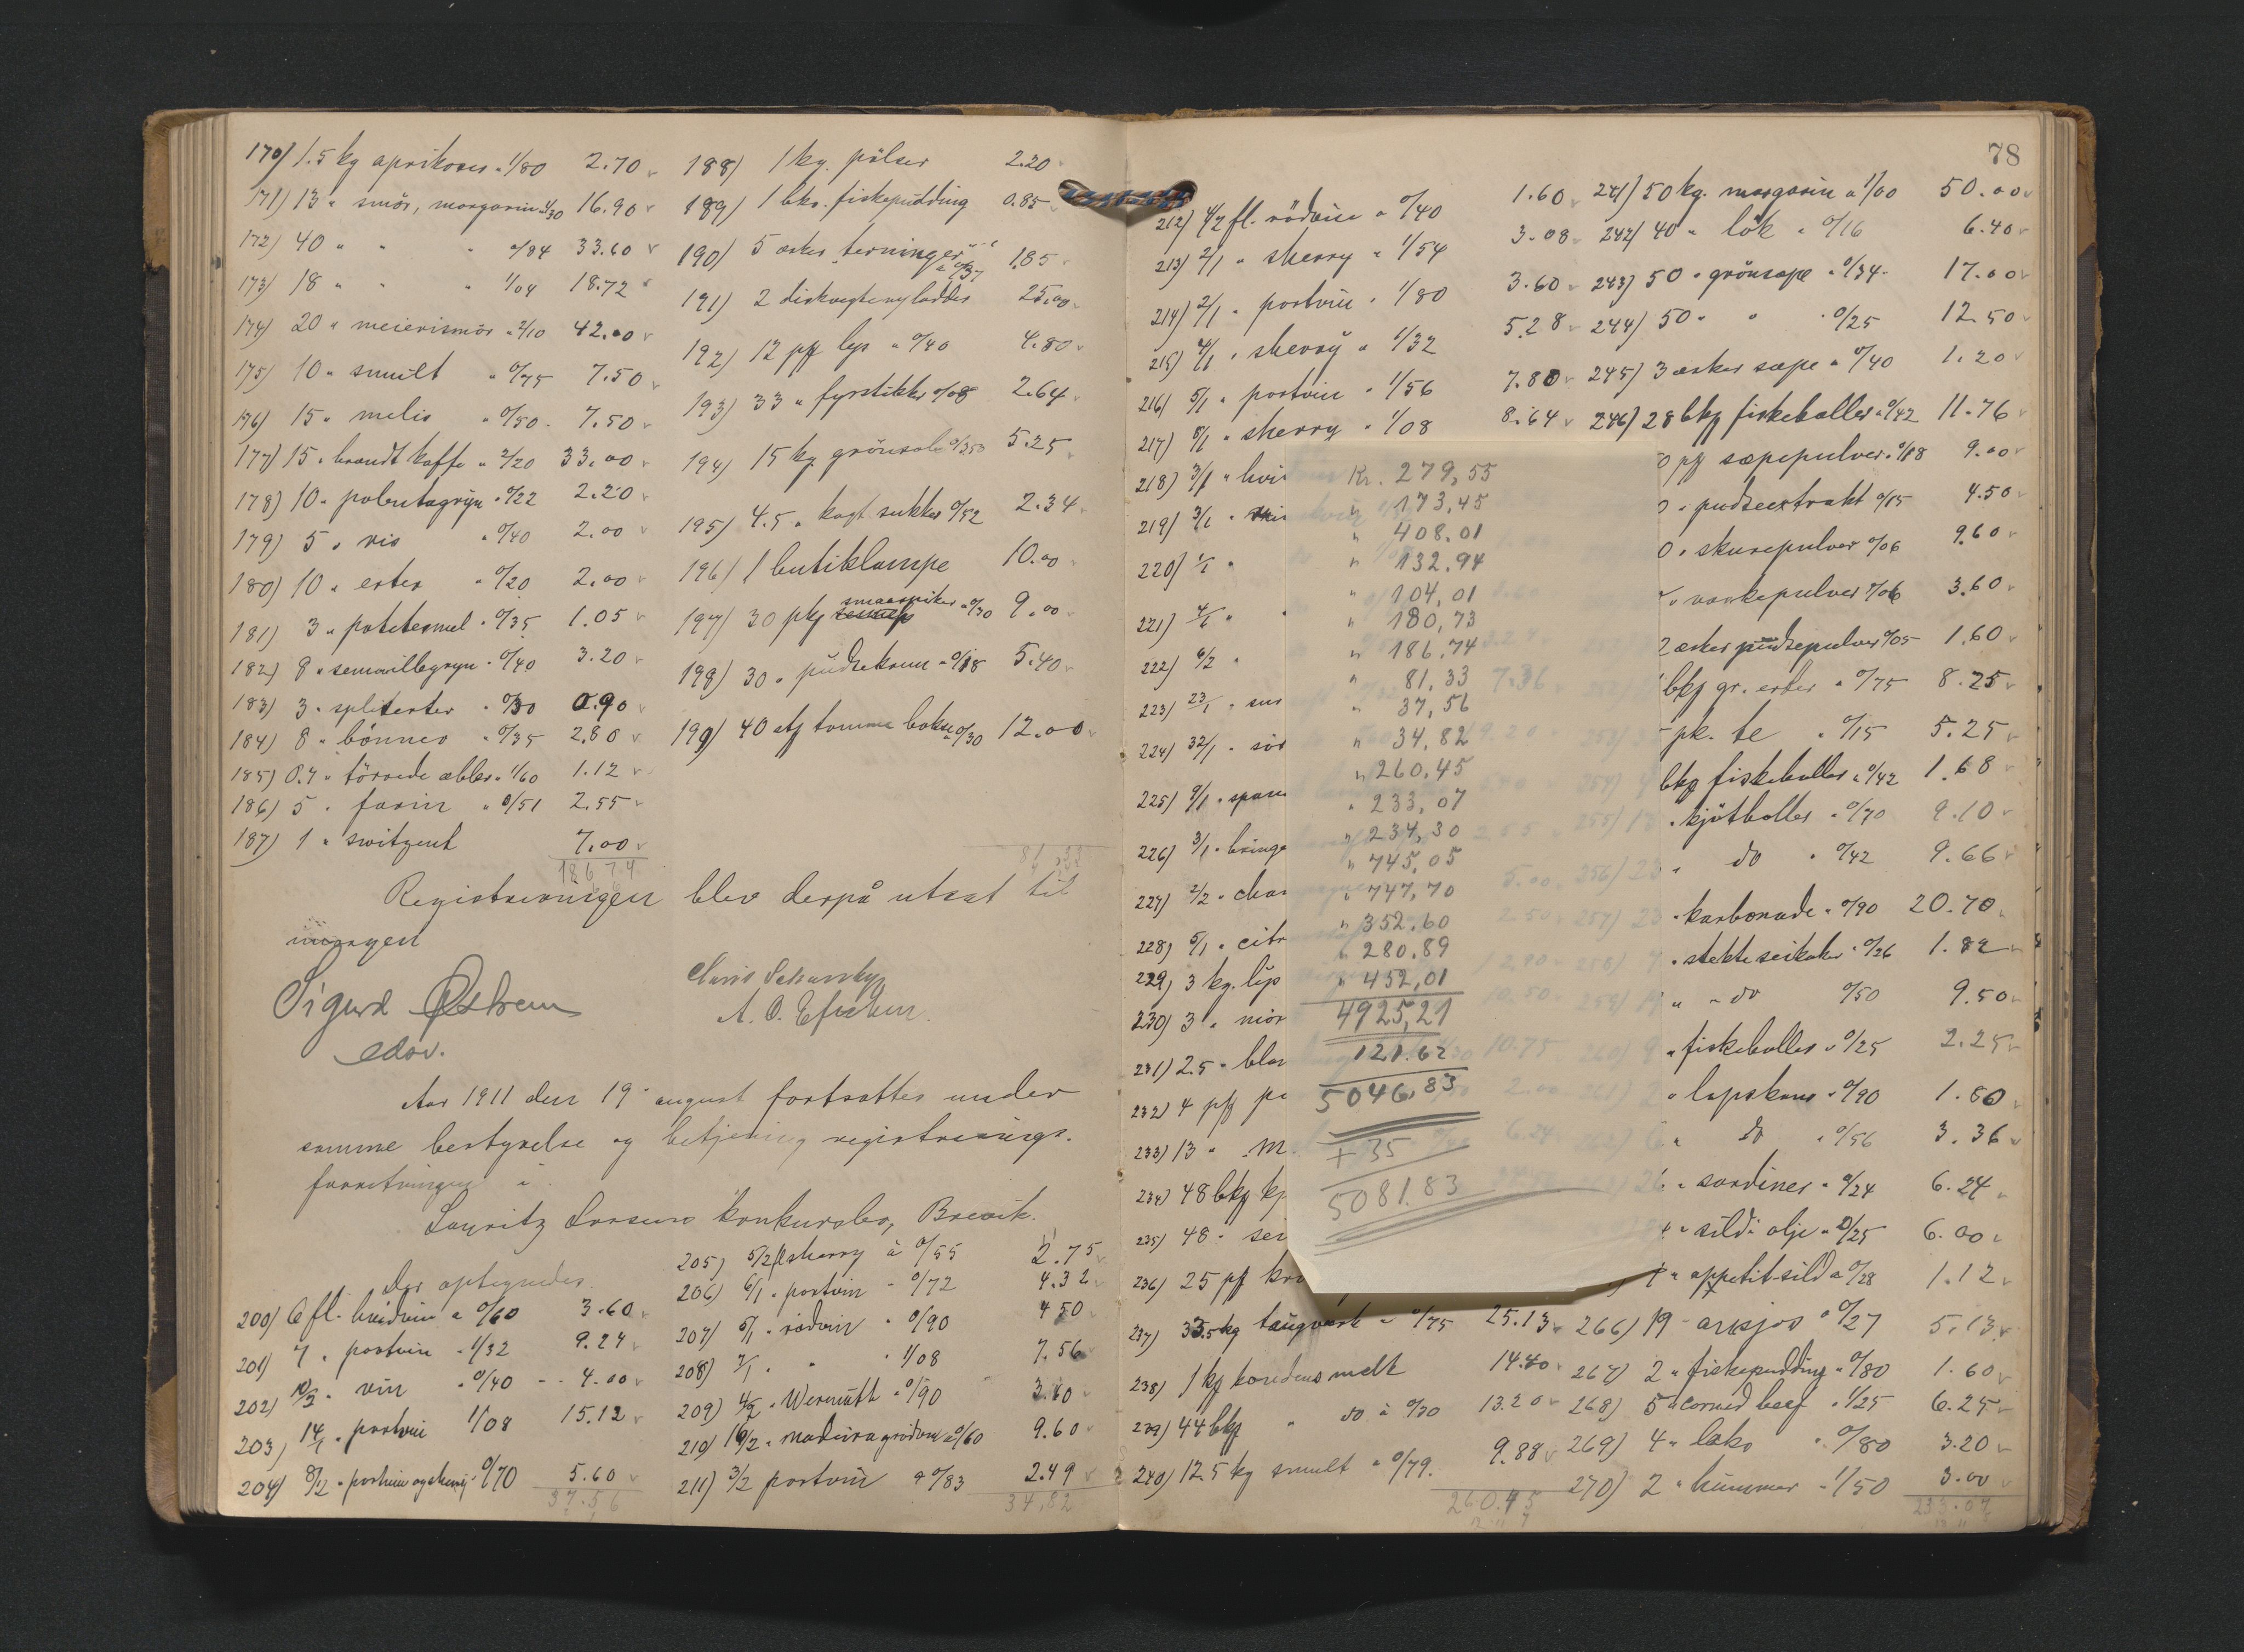 170) 1.5 kg aprikoser " 1/80 2.70
171) 13 " smör, margarin 1/30 16.90
172) 40 " " " 0/84 33.60
173) 18 " " " 1/04 18.72
174) 20 " meierismör " 2/10 42.00
175) 10 " smult " 0/75 7.50
176) 15 " melis " 0/50 7.50
177) 15 " brændt kaffe " 2/20 33.00
178) 10 " polentagryn " 0/22 2.20
179) 5 " ris " 0/40 2.00
180) 10 " erter " 0/20 2.00
181) 3 " potetesmel " 0/35 1.05
182) 8 " semouillegryn " 0/40 3.20
183) 3 " spliterter " 0/30 0.90
184) 8 " bönner " 0/35 2.80
185) 0.7 " törrede æbler " 1/60 1.12
186) 5 " farin " 0/51 2.55
187) 1 " switzent 7.00
186.74
188) 1 kg. pölser 2.20
189) 1 bks. fiskepudding 0.85
190) 5 æsker terninger " 0/37 1.85
191) 2 diskvegte m/ lodder 25.00
192) 12 pk lys " 0/40 4.80
193) 33 " fyrstikker 0/08 2.64
194) 15 kg grönsale 0/35 5.25
195) 4.5 " kagt sukker 0/52 2.34
196) 1 butiklampe 10.00
197) 30 pk smaaspiker " 0/30 9.00
198) 30 " pudsekram " 0/18 5.40
199) 40 st tomme bokser 0/30 12.00
81.33
Registreringen blev derpå utsat til
imorgen
Sigurd Østrem
edsv.
Aar 1911 den 19 august fortsattes under
samme bestyrelse og betjening registrerings-
forretningen i
Lauritz Larsens konkursbo, Brevik.
Der optegnedes
200) 6 fl. hvidvin " 0/60 3.60
201) 7 " portvin " 1/32 9.24
202) 10/2 " vin " 0/40 4.00
203) 14/1 " portvin 1/08 15.12
204) 8/2 " portvin og sherry " 0/70 5.60
37.56
205) 5/2 fl sherry à 0/55 2.75
206) 6/1 " portvin " 0/72 4.32
207) 5/1 " rödvin " 0/90 4.50
208) 7/1 " " " 1/08 7.56
209) 4/2 " Wermuth " 0/90 3.60
210) 16/2 " madeira grödvin à 0/60 9.60
211) 3/2 portvin à 0/83 2.49
34,82
78
212) 4/2 fl. rödvin " 0/40 1.60
213) 2/1 " sherry " 1/54 3.08
214) 2/1 " portvin " 1/80 3.60
215) 4/1 " sherry " 1/32 5.28
216) 5/1 " portvin " 1/56 7.80
217) 8/1 " sherry " 1/08 8.64
218) 3/1 " hvi
219) 3/1 "
220) 1/1 "
221) 4/1 "
222) 6/2 "
223) 23/1 "
224) 32/1 "
225) 9/1 "
226) 3/1 " bringe
227) 2/2 " cha
228) 5/1 " citr
229) 3 kg.
230) 3 "
231) 2.5 "
232) 4 pk
233) 13 " M
234) 48 bks
235) 48 "
236) 25 pk
237) 33.5 kg taugverk " 0/75 25.13
238) 1 ks kondens melk 14.40
239) 44 bks " do à 0/30 13.20
240) 12.5 kg smult " 0/79 9.88
260.45
Kr. 279,55
" 173,45
" 408.01
" 132.94
" 104,01
" 180,73
" 186,74
" 81,33
" 37,56
" 34,82
" 260,45
" 233,07
" 234,30
" 745,05
" 747,70
" 352.60
" 280.89
" 452,01
4925,21
121.62
5046,83
+ 35
5081.83
241) 50 kg. margarin à 1/00 50.00
242) 40 " lök " 0/16 6.40
243) 50 " grönsape " 0/34 17.00
244) 50 " " " 0/25 12.50
245) 3 æsker sæpe " 0/40 1.20
246) 28 bks fiskeboller " 0/42 11.76
0 pk sæpepulver " 0/18 9.00
" pudseextrakt 0/15 4.50
0 " skurepulver 0/06 9.60
" vaskepulver 0/06 3.60
2 æsker pudsepulver 0/05 1.60
bks gr. erter " 0/75 8.25
pk. te " 0/15 5.25
bks fiskeboller " 0/42 1.68
" kjötboller " 0/70 9.10
" do " 0/42 9.66
" karbonade " 0/90 20.70
" stekte seikaker " 0/26 1.82
" " do 0/50 9.50
" fiskeboller " 0/25 2.25
" lapskaus " 0/90 1.80
" do " 0/56 3.36
" sardiner " 0/24 6.24
" sild i olje " 0/25 6.00
" appetit-sild à 0/28 1.12
266) 19 " ansjos " 0/27 5.13
267) 2 " fiskepudding " 0/80 1.60
268) 5 " corned beef " 1/25 6.25
269) 4 " laks " 0/80 3.20
270) 2 " hummer " 1/50 3.00
233.07